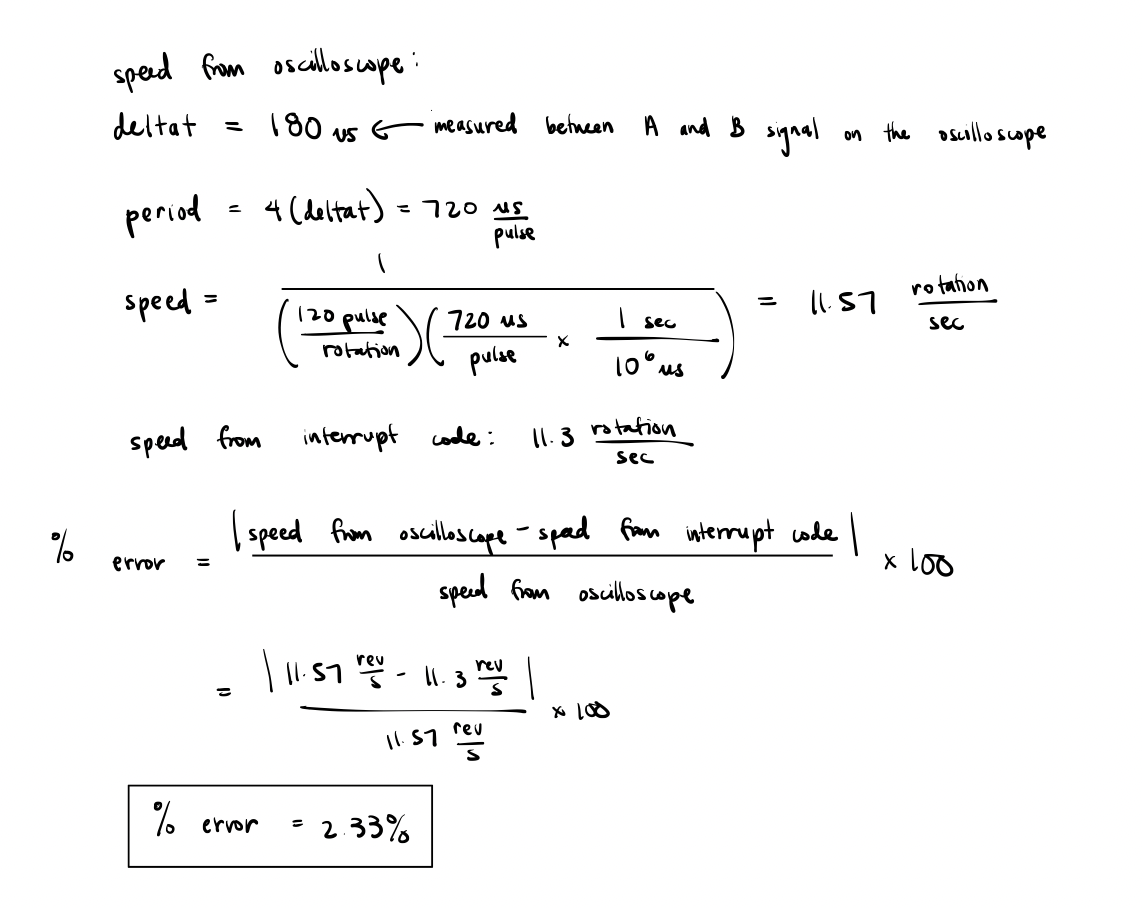 speed from oscilloscope:
deltat = 180 us ← measured between A and B signal on the oscilloscope
period = 4(deltat) = 720 us/pulse
speed = 1 / ((120 pulse/rotation)(720 us/pulse × 1 sec/10^6 us)) = 11.57 rotation/sec
speed from interrupt code: 11.3 rotation/sec
% error = |speed from oscilloscope - speed from interrupt code| / speed from oscilloscope × 100
= |11.57 rev/s - 11.3 rev/s| / 11.57 rev/s × 100
% error = 2.33%